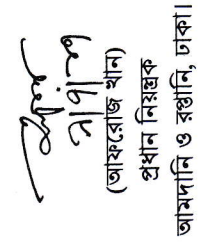 (আফরোজ খান)
প্রধান নিয়ন্ত্রক
আমদানি ও রপ্তানি, ঢাকা।